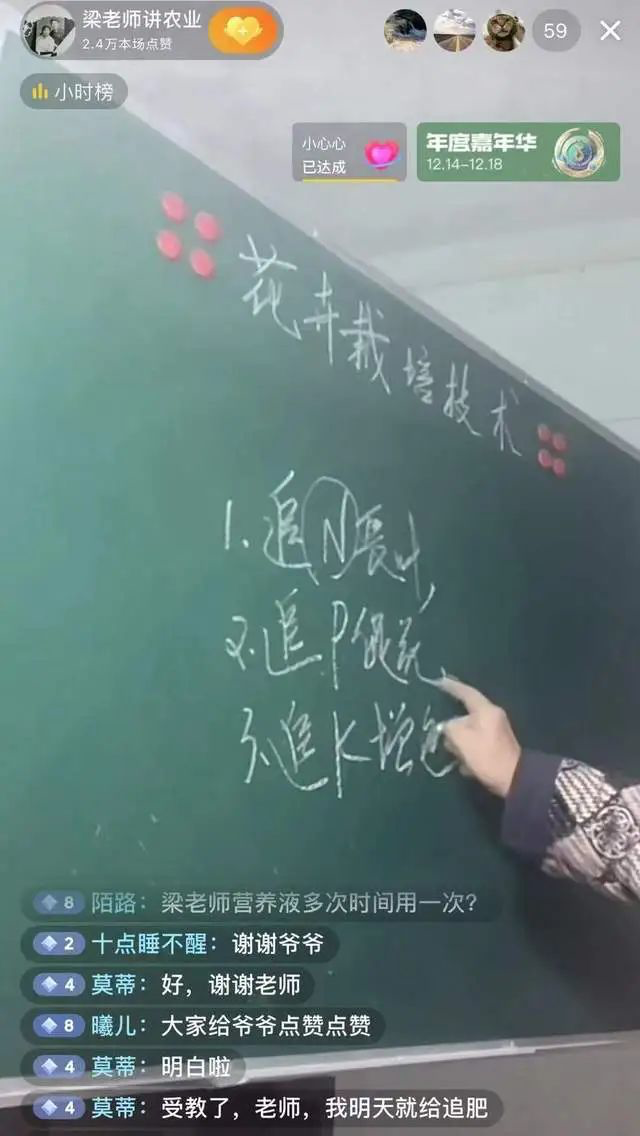 梁老师讲农业
2.4万本场点赞
59
小时榜
小心心
已达成
年度嘉年华
12.14-12.18
花卉栽培技术
1.追N叶
2.追P花
3.追K增色
8 陌路：梁老师营养液多次时间用一次？
2 十点睡不醒：谢谢爷爷
4 莫蒂：好，谢谢老师
8 曦儿：大家给爷爷点赞点赞
4 莫蒂：明白啦
4 莫蒂：受教了，老师，我明天就给追肥